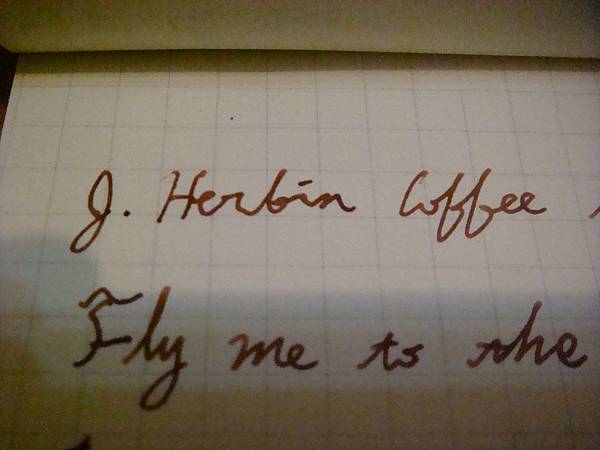 J. Herbin Coffee
Fly me to the